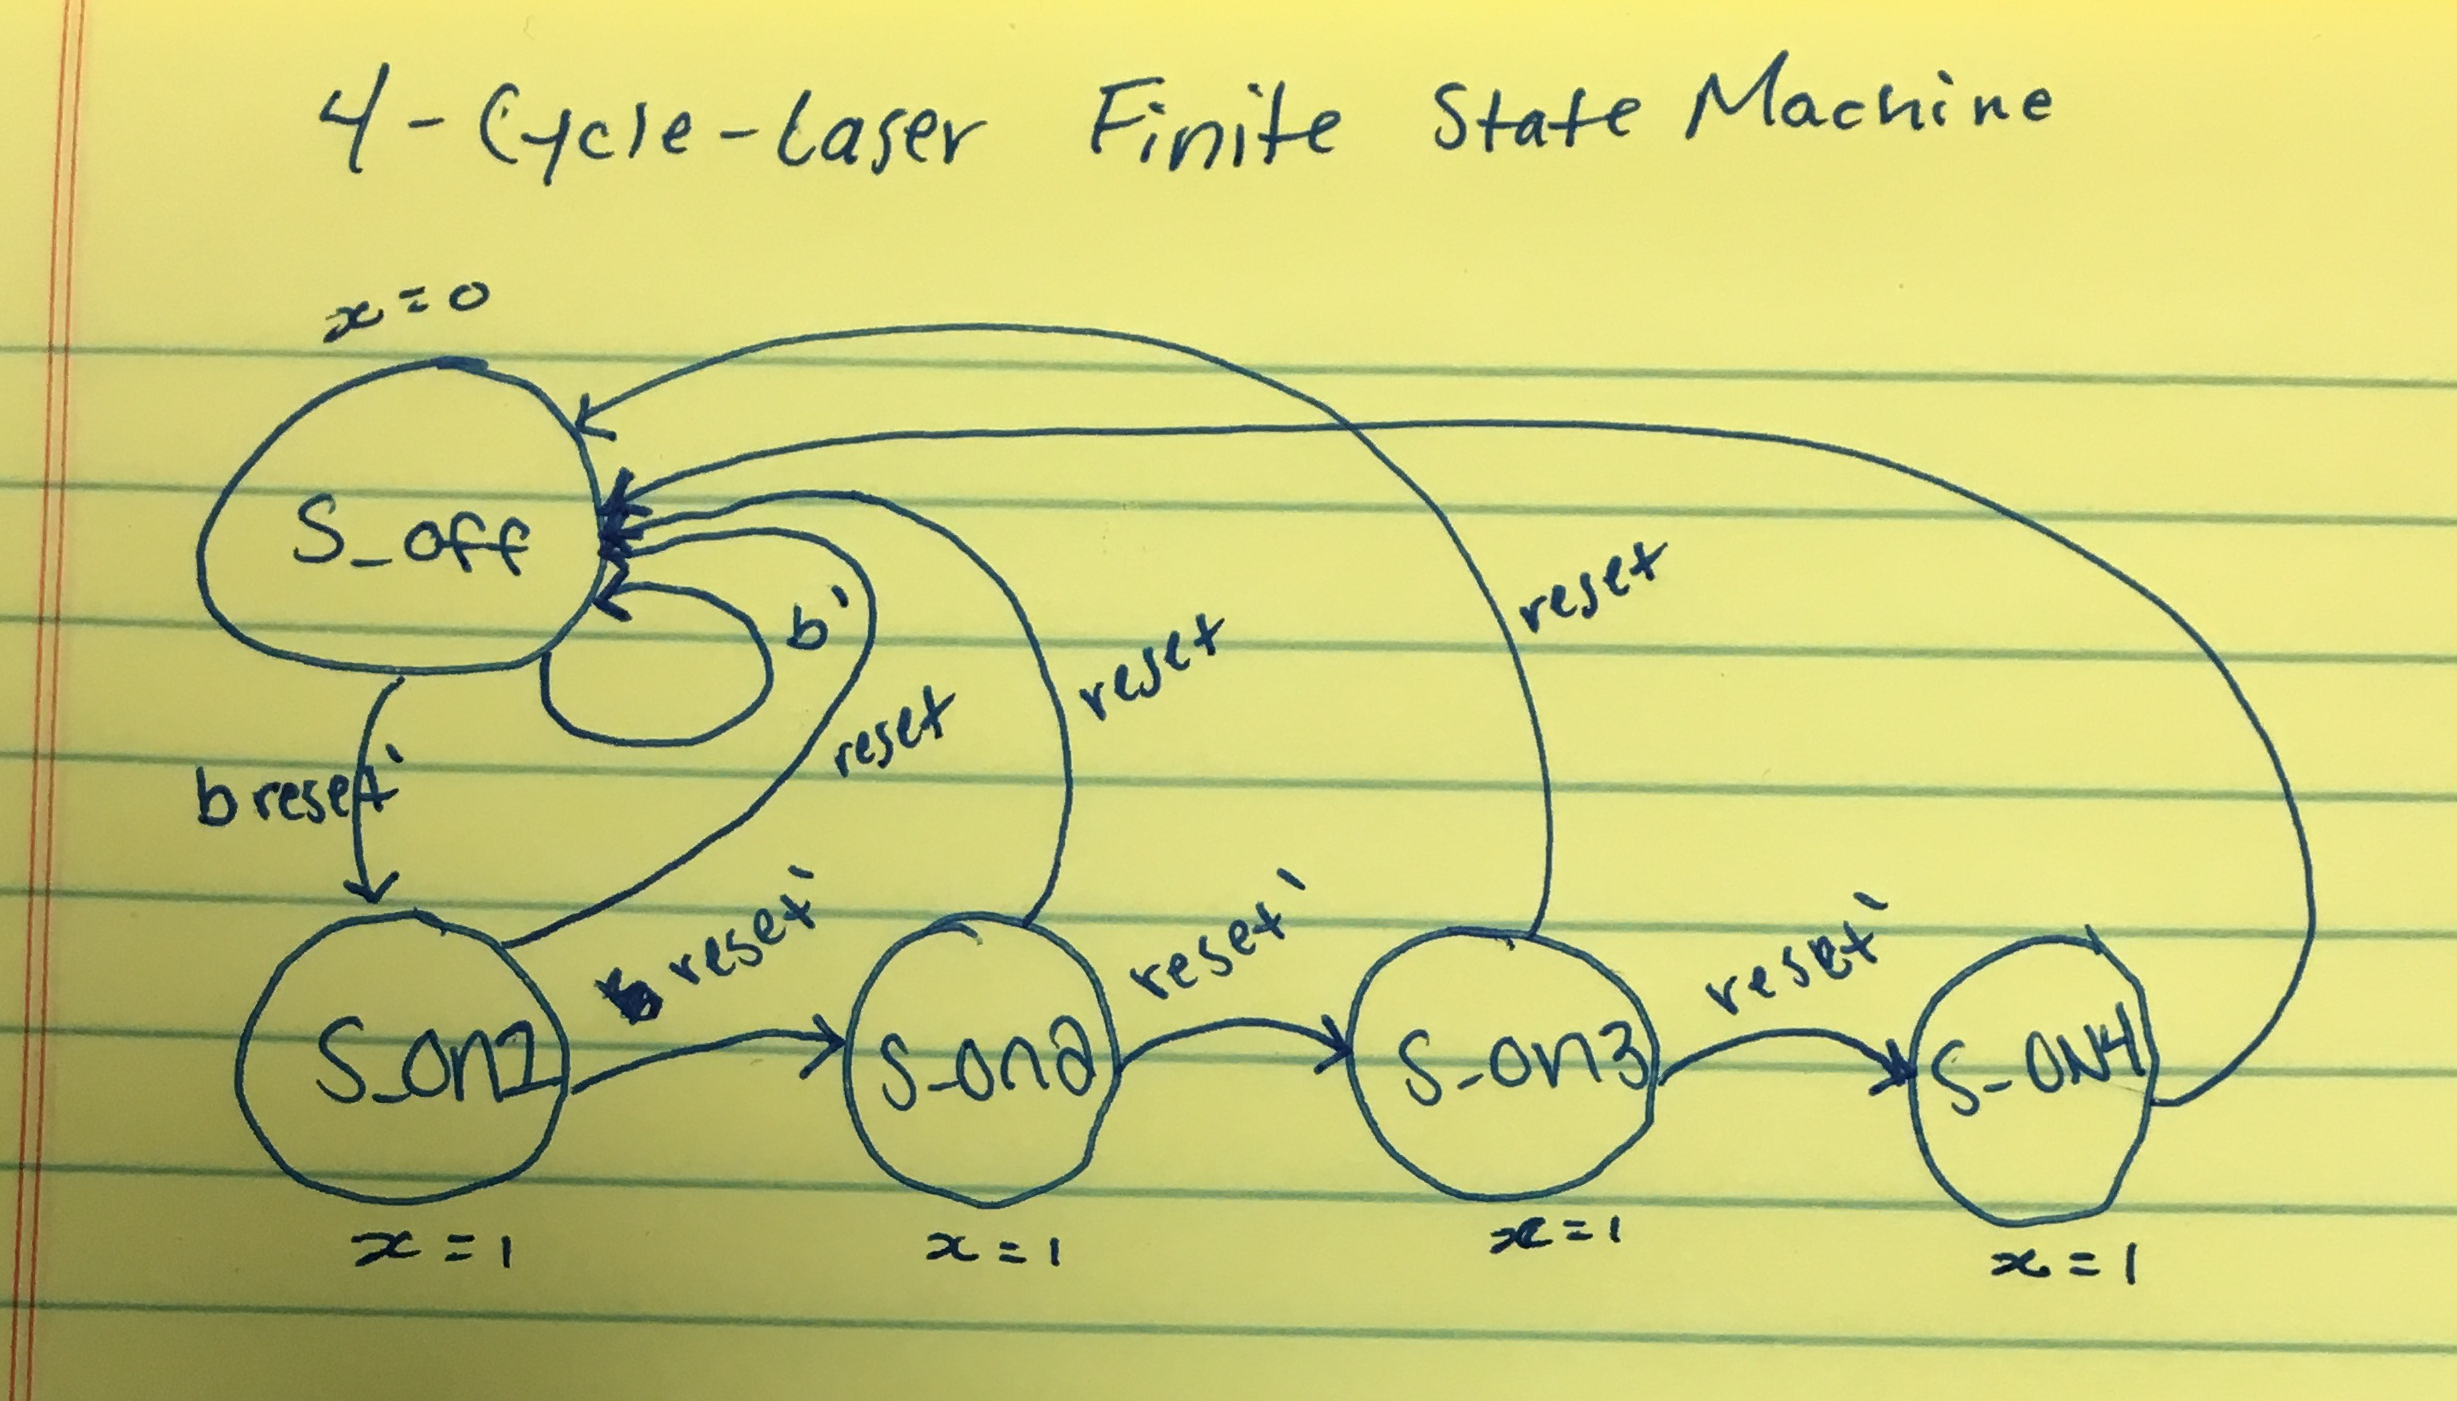 4-Cycle-Laser Finite State Machine
x=0
S_off
b'
reset
reset
reset
b reset'
reset'
reset'
reset'
S_on1
S_on2
S_on3
S_ON4
x=1
x=1
x=1
x=1